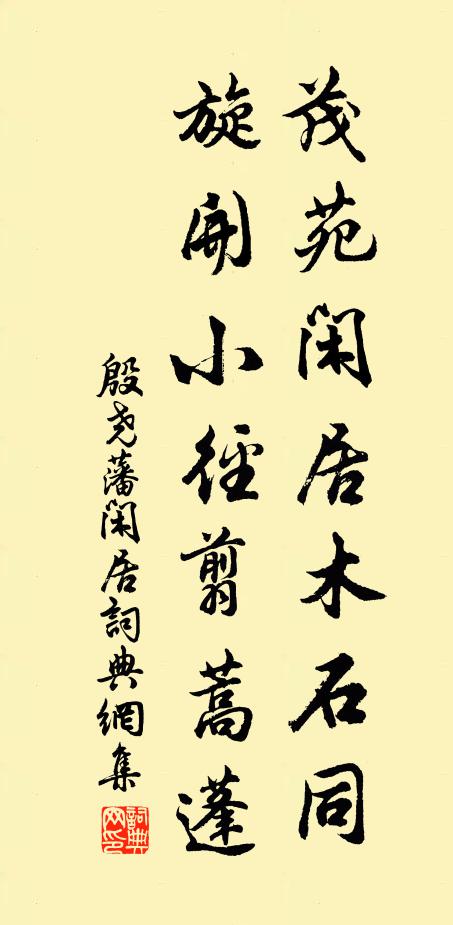 茂苑閑居木石同
旋開小徑翦蒿蓬
殷尧藩閑居詞典網集
詞典网印